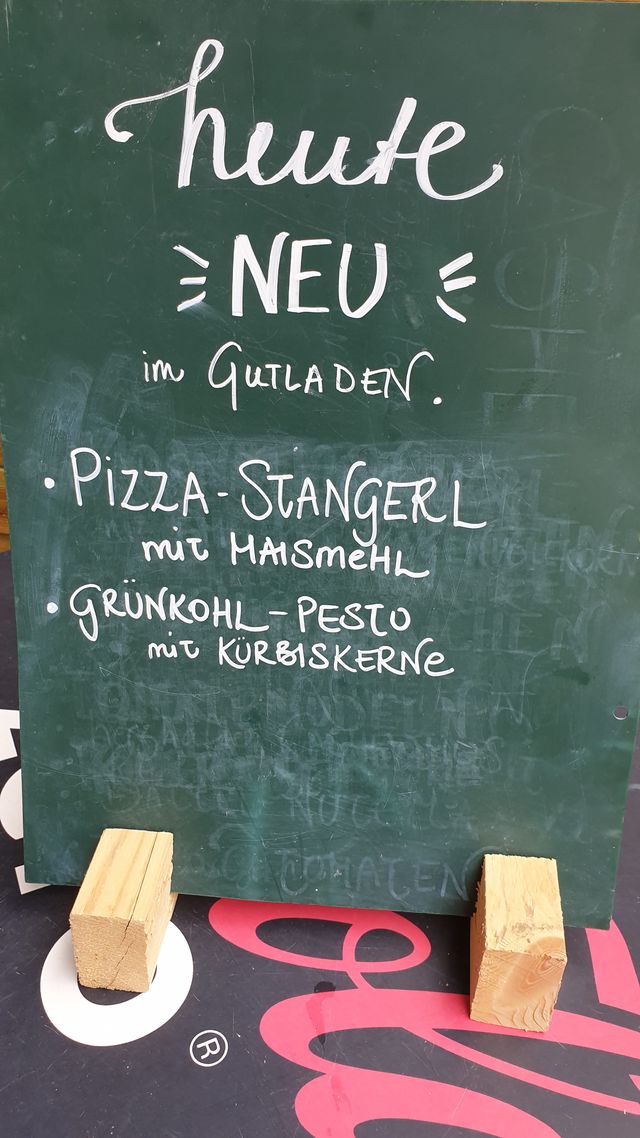 heute
NEU
im GUTLADEN.
• PIZZA-STANGERL
mit MAISMEHL
• GRÜNKOHL-PESTO
mit KÜRBISKERNe
TOMATEN
®